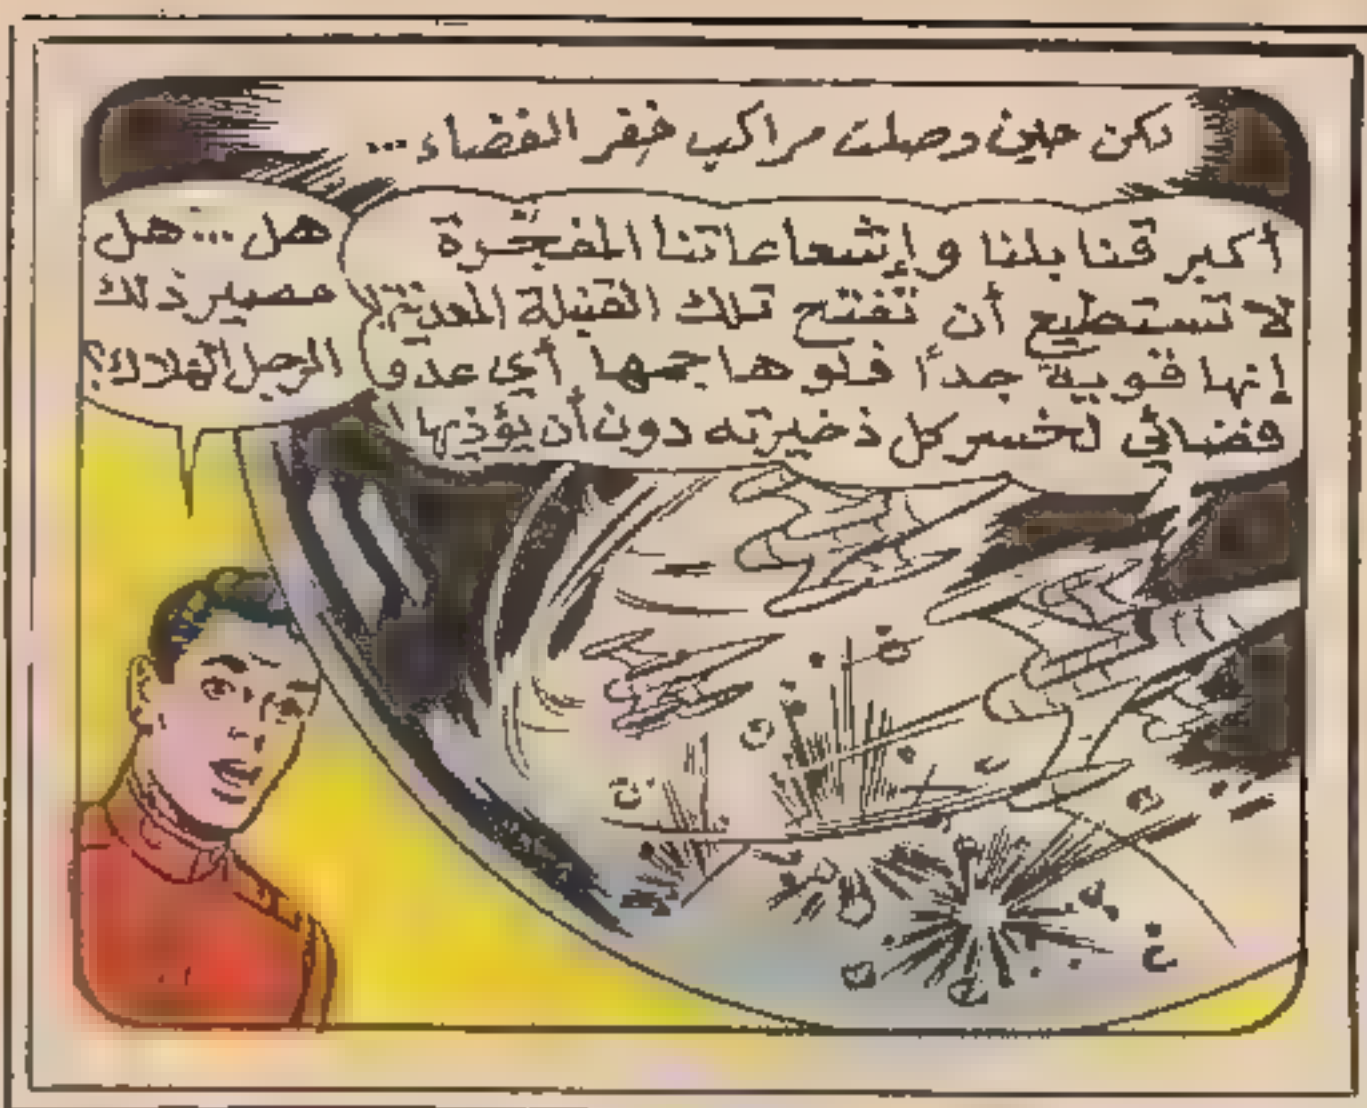 لكن حين وصلت مراكب خفر الفضاء...
أكبر قنابلنا وإشعاعاتنا المفجّرة
لا تستطيع أن تفتح تلك القنبلة المعدنية!
إنها قوية جداً فلو هاجمها أي عدو
فضائي لخسر كل ذخيرته دون أن يؤذيها!
هل...هل
مصير ذلك
الرجل الهلاك؟